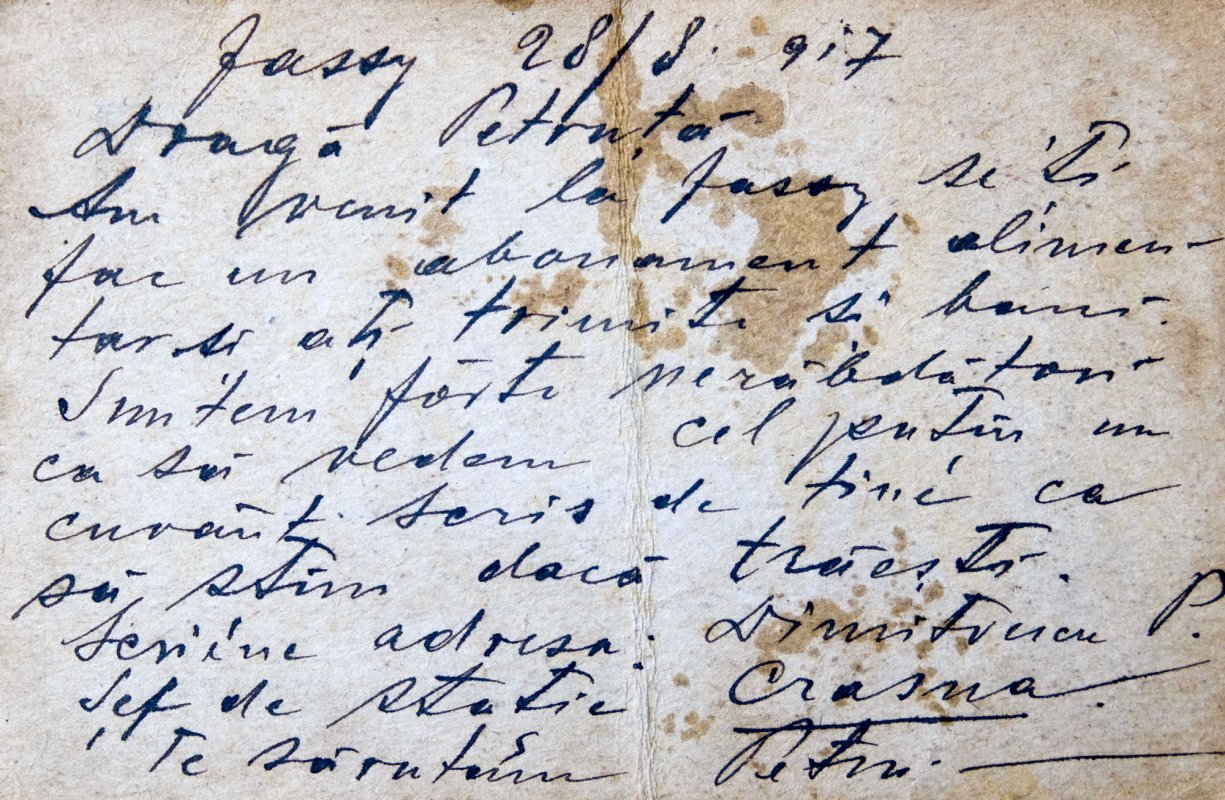 Jassy 28/8. 917
Dragă Petruță
Am venit la Jassy se'ti
fac un abonament alimen-
tar si ați trimite si bani.
Suntem fōrte nerăbdători
ca să vedem cel putin un
cuvānt scris de tine ca
să stim dacă trăești.
Scriéne adresa: Dimitrescu P.
Șef de statie Crasna.
Te sărutăm Petru.